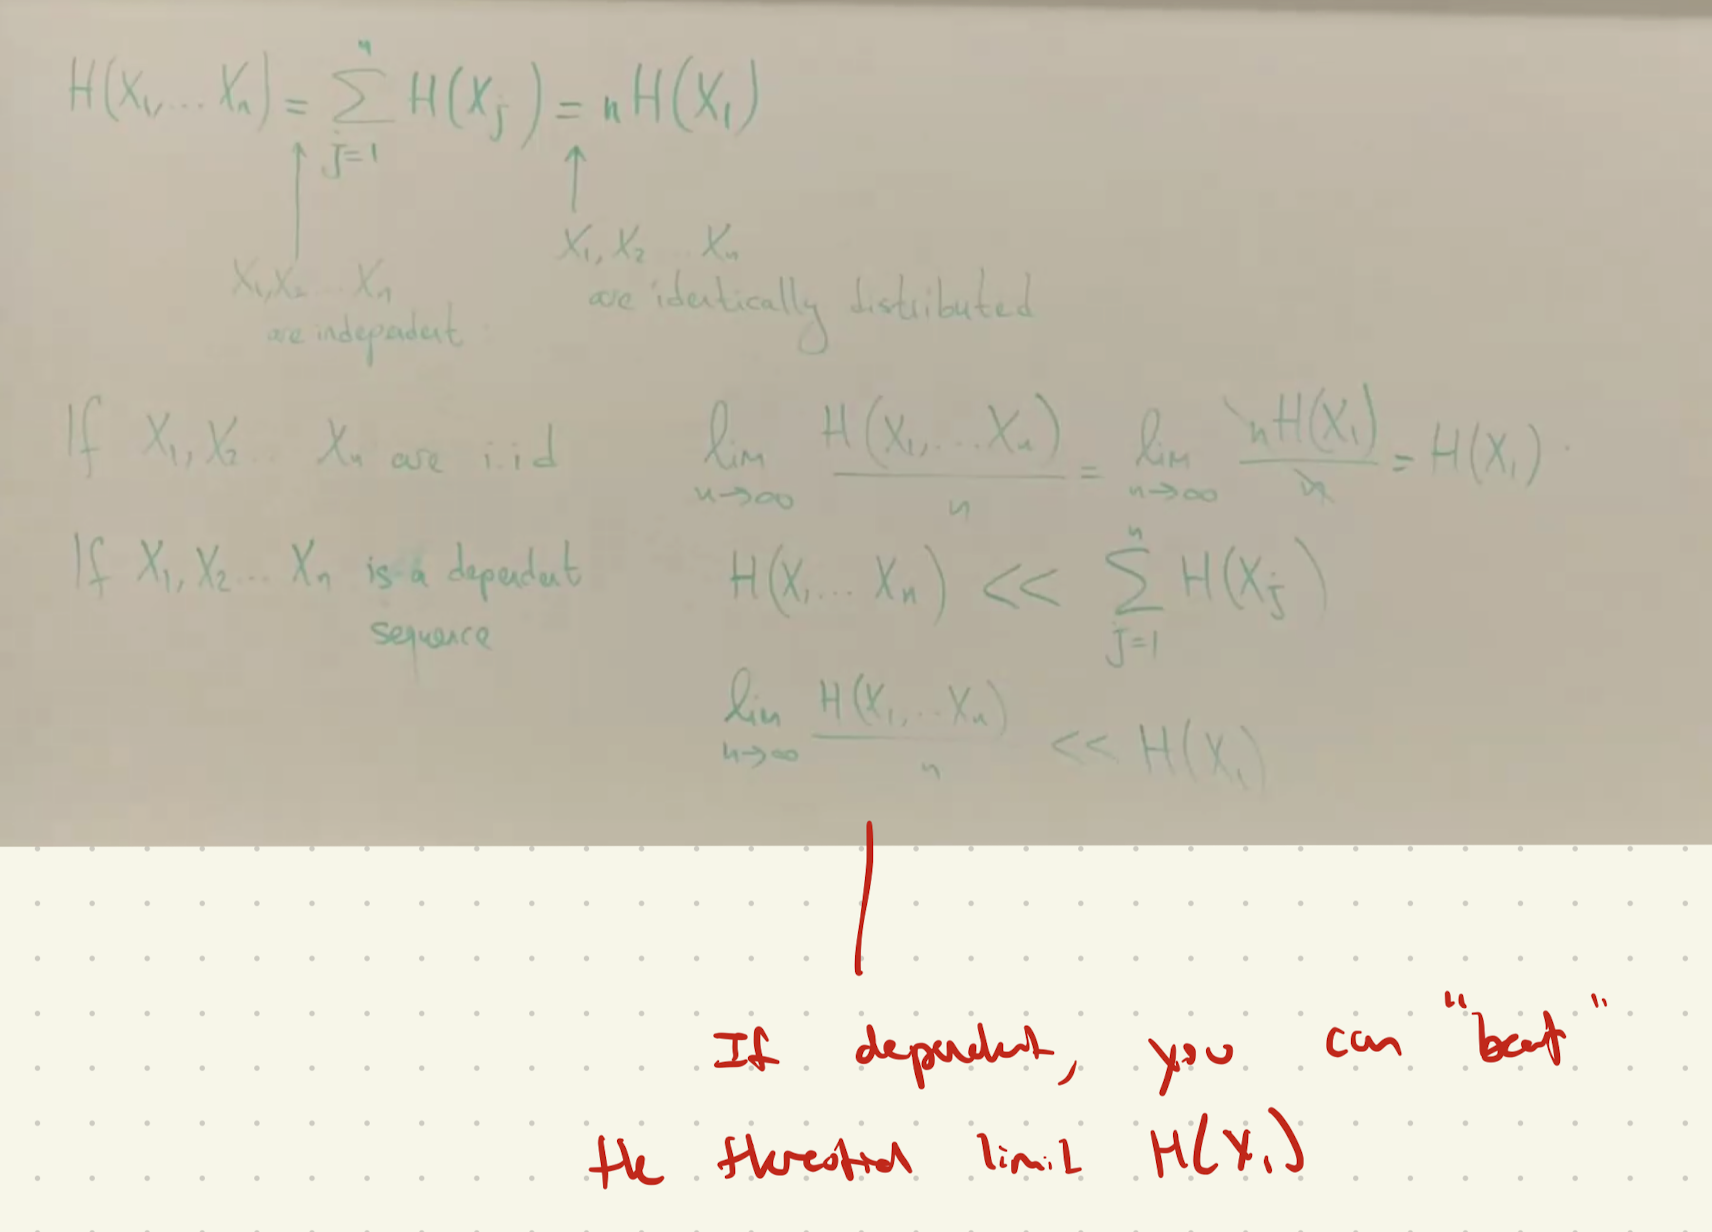 H(X₁,...Xₙ) = ∑ⁿⱼ₌₁ H(Xⱼ) = nH(X₁)
X₁,X₂...Xₙ
are independent
X₁,X₂...Xₙ
are identically distributed
If X₁,X₂...Xₙ are i.i.d
lim n→∞ H(X₁,...Xₙ)/n = lim n→∞ nH(X₁)/n = H(X₁)
If X₁,X₂...Xₙ is a dependent
sequence
H(X₁...Xₙ) << ∑ⁿⱼ₌₁ H(Xⱼ)
lim n→∞ H(X₁,...Xₙ)/n << H(X₁)
If dependent, you can "beat"
the limit H(X₁)